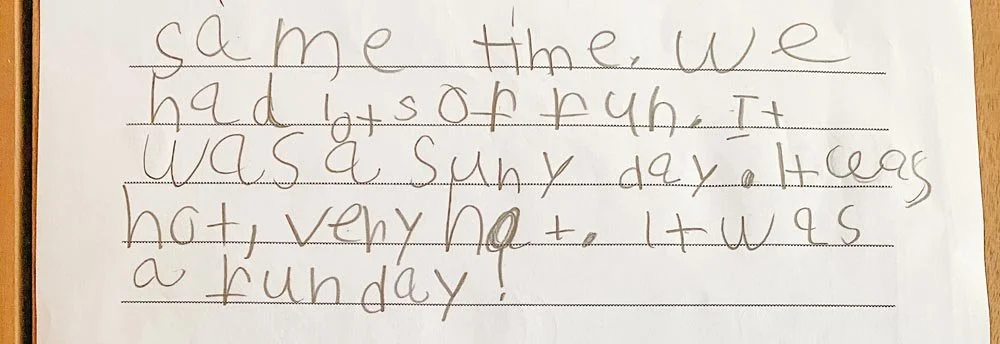 same time. We
had lots of fun. It
was a suny day. It was
hot, very hot. It was
a fun day!